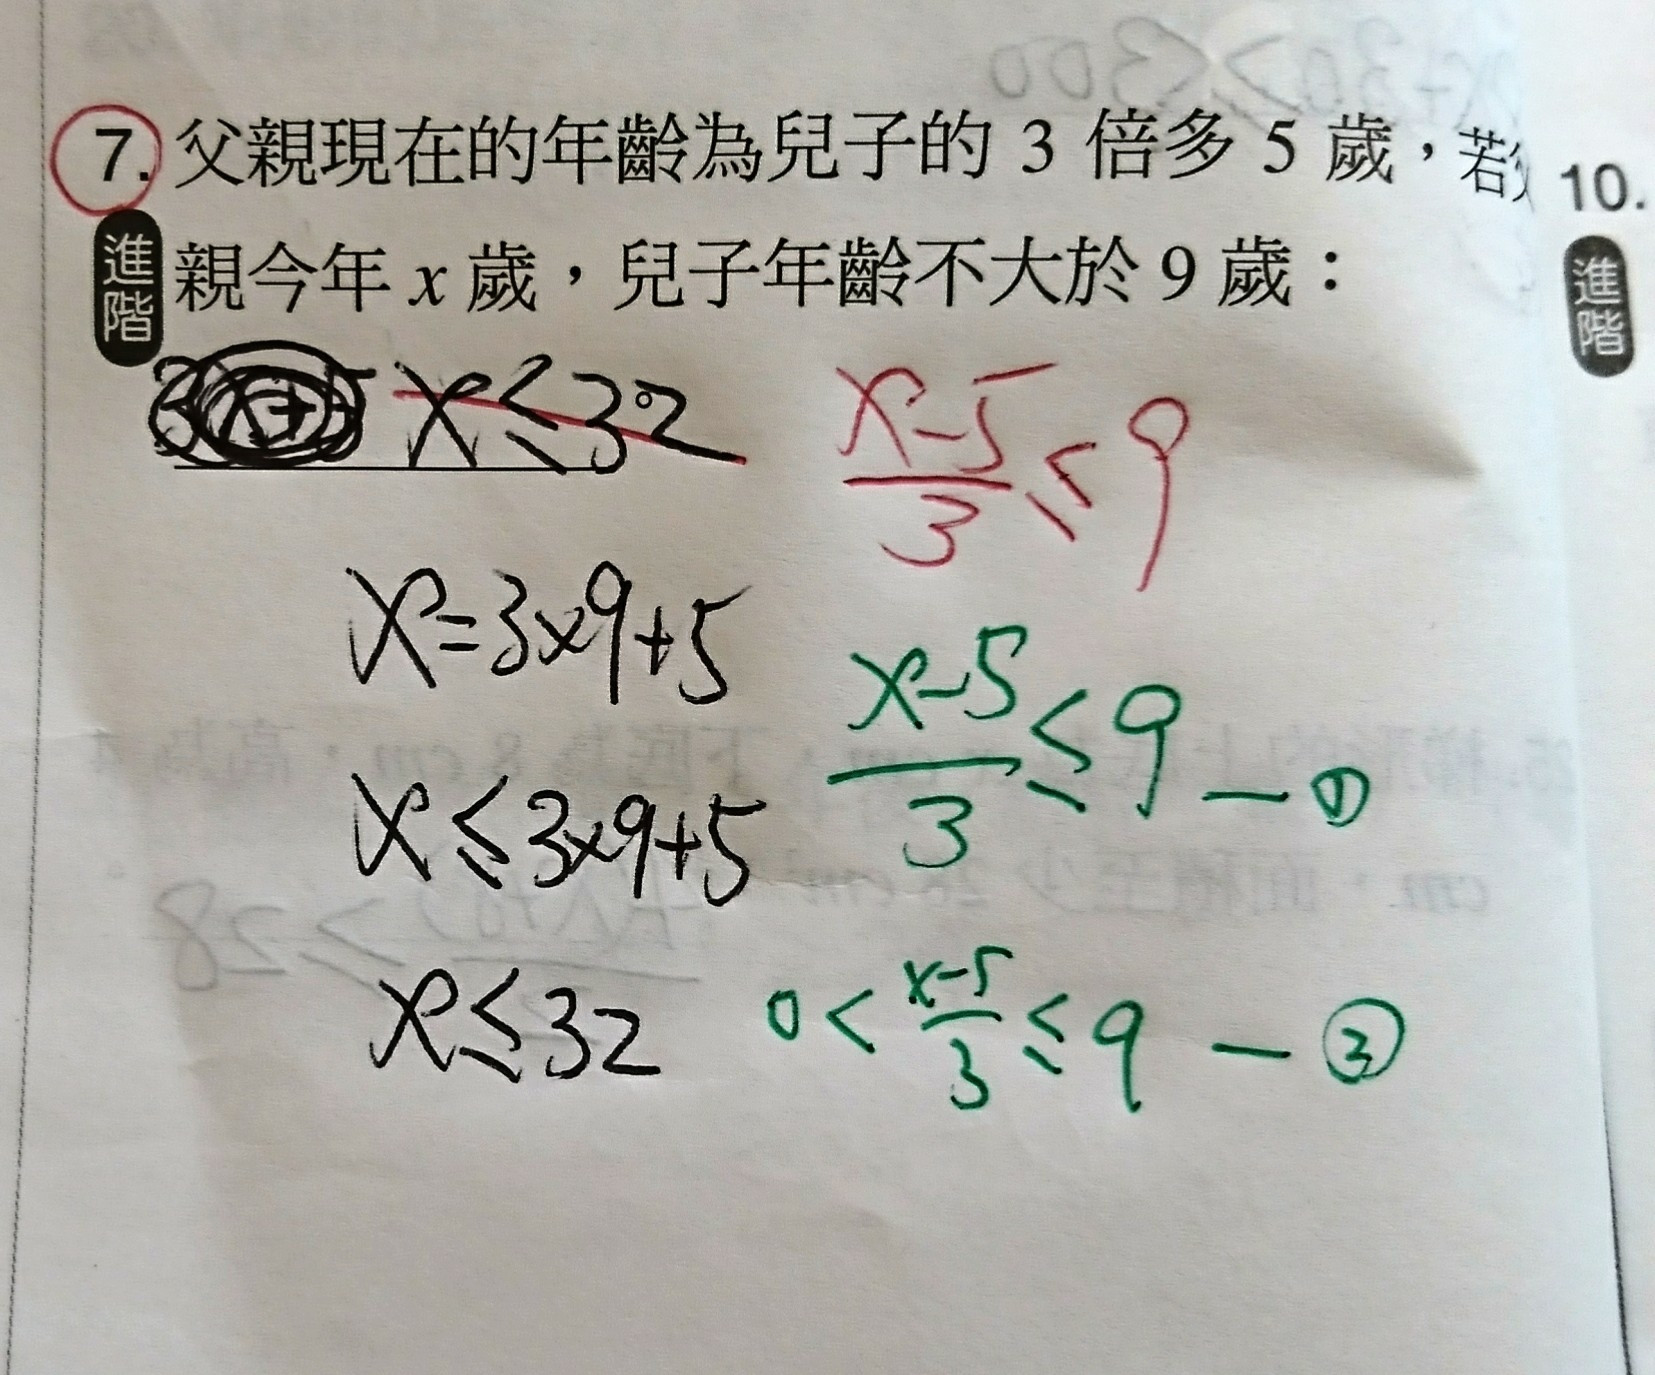 7. 父親現在的年齡為兒子的 3 倍多 5 歲，若父
進階
親今年 x 歲，兒子年齡不大於 9 歲：
x≤32
x-5/3 ≤9
x=3x9+5
x-5/3 ≤9 — ①
x≤3x9+5
x≤32
0< x-5/3 ≤9 — ②
10.
進階